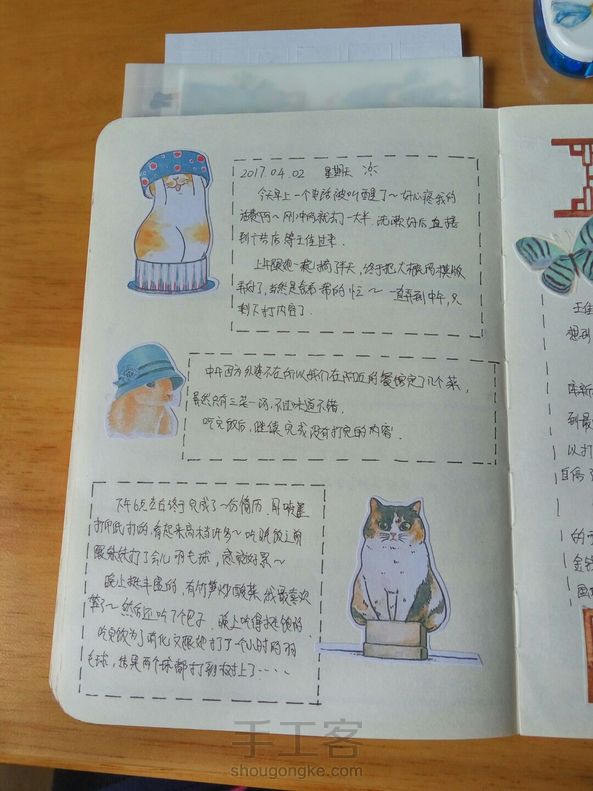 2017.04.02 星期天
今天早上一个电话被叫醒了~好心疼我的
话费啊~刚冲的就打了一大半.洗漱好后直接
到广告店等王佳过来.
上午跟她一起搞了半天,终于把大概的模版
弄好了,当然是各看各的忙~一直弄到中午,只
剩下打内容了.
中午因为外婆不在所以我们在附近的餐馆定了几个菜,
虽然只有三菜一汤,不过味道不错.
吃完饭后,继续完成没有打完的内容.
下午6点左右终于完成了一份简历.用喷墨
打印纸打的,看起来高档许多~吃晚饭之前
跟妹妹打了会儿羽毛球,感觉好累~
晚上挺丰盛的,有竹笋炒酸菜,我最喜欢
了~然后还吃了个包子.晚上吃得挺饱的.
吃完饭为了消化又跟她打了一个小时的羽
毛球,结果两个球都打到树上了.....
王佳
想到
到最
以打
手工客
shougongke.com